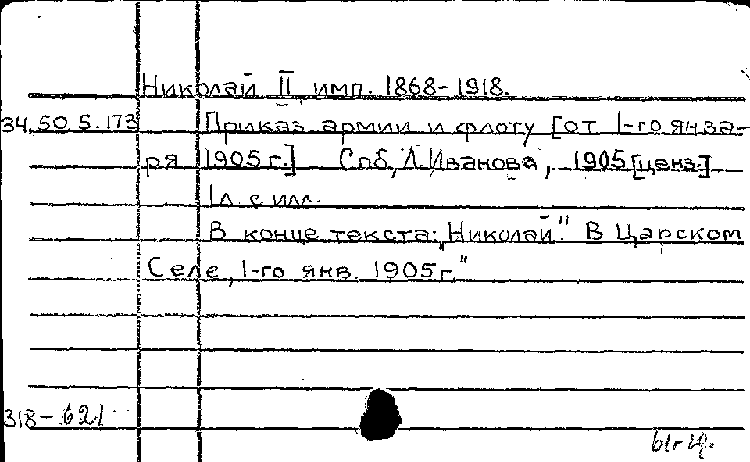 Николай II, имп. 1868-1918.
34.50 5.173 Приказ армии и флоту [от 1-го янва-
ря 1905 г.] Спб, Л. Иванова, 1905 [ценз.]
1 л. с илл.
В конце текста: „Николай". В Царском
Селе, 1-го янв. 1905 г."
318-621